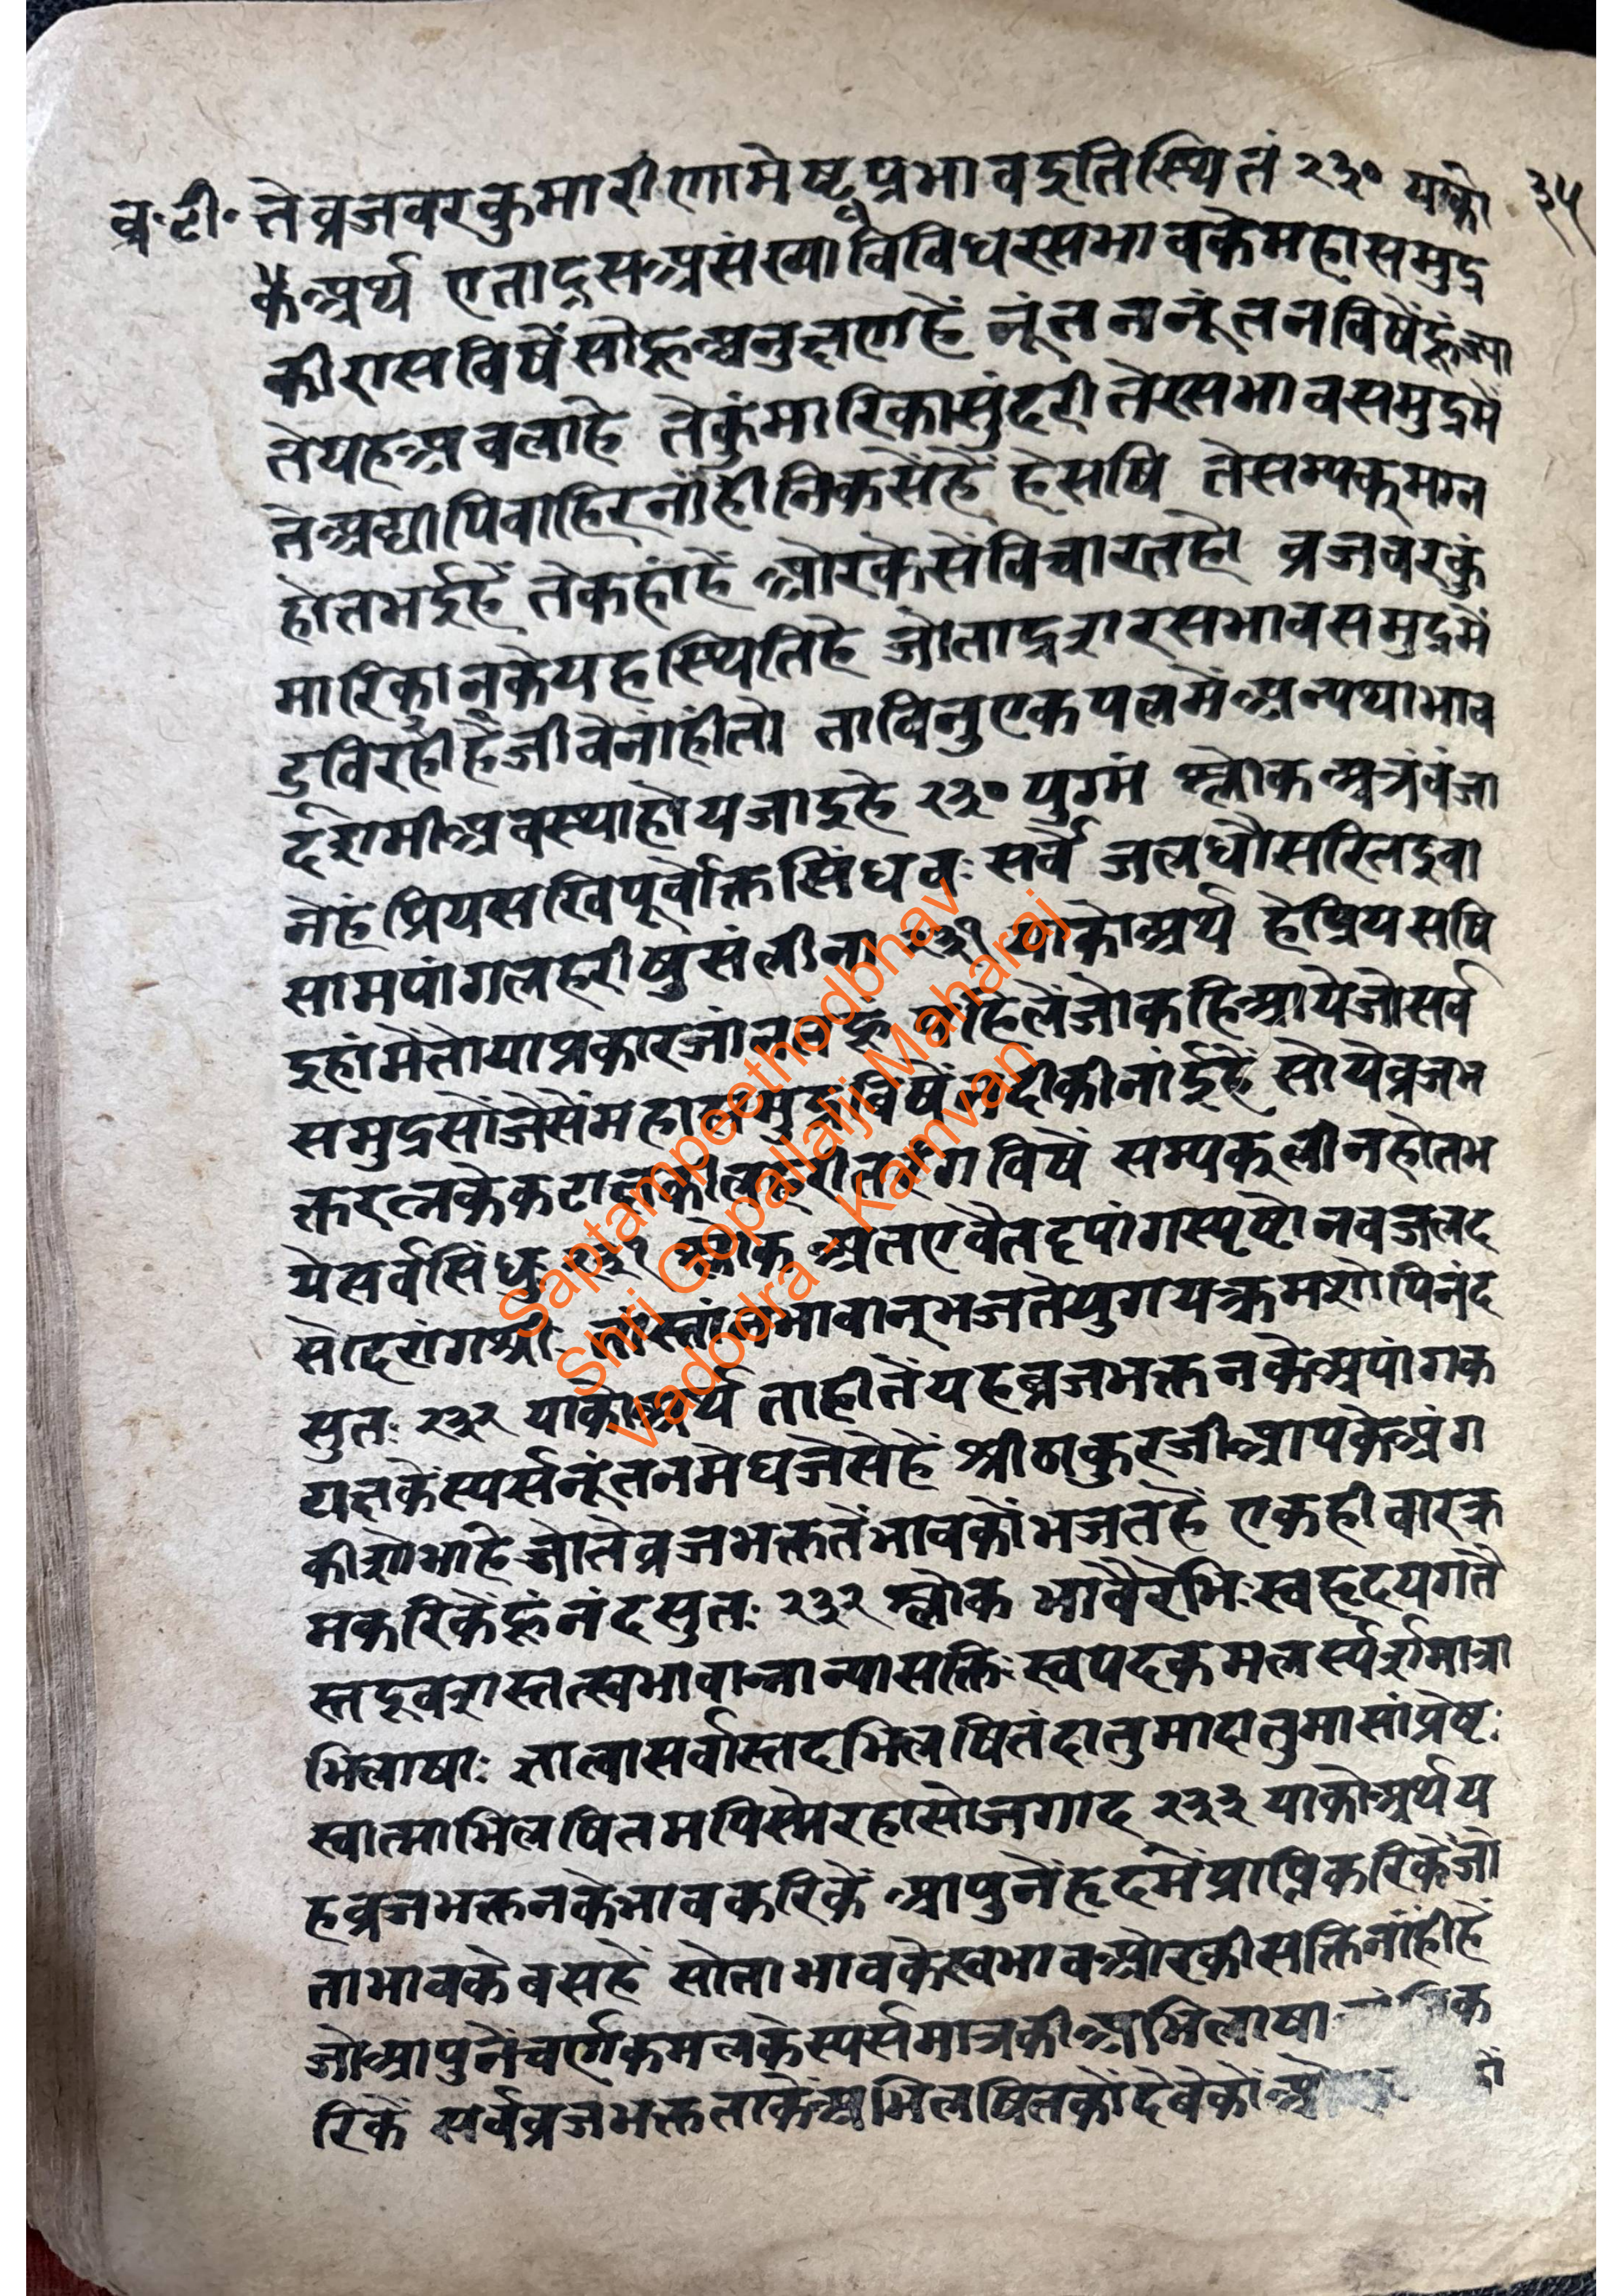 व्र॰टी॰ ते व्रजवरकुमारीणामेष प्रभावइतिस्थितं २३० याको ३५
कैअर्थ एतादृसअसंख्याविविधरसभावकेमहासमुद्र
कीरासविषेंसोहूअनुक्षणहें नूंतननूंतनविषेंहूंज्या
तेयहअवलाहे तेकुंमारिकासुंदरी तेरसभावसमुद्रमें
तेअद्यापिवाहिरनांहीनिकसेंहें हेसषि तेसम्यक्मग्न
होतभईहें तेकहांहें ओरकेसेंविचारतहो व्रजवरकुं
मारिकानकेयहस्थितिहै जोताद्रशरसभावसमुद्रमें
डुविरहीहेंजीवेनांहीतो ताविनुएकपलमेंअन्यथाभाव
दशमीअवस्थाहोयजाइहे २३० युग्मं श्लोक अत्रैवंजा
नेहं प्रियसखिपूर्वोक्तसिंधवः सर्वे जलधौसरितइवा
सामपांगलहरीषुसंलीना २३१ याकोअर्थ हेप्रियसषि
इहांमेंतोयाप्रकारजांनतहूं पहिलेंजोकहिआयेजोसर्व
समुद्रसोंजेसेंमहासमुद्रविषेंनदीकीनांईहें सोयेव्रजभ
क्तरत्नकेकटाक्षकीलहरीतरंगविषें सम्यक्लीनहोतभ
येसर्वसिंधु २३१ श्लोक अतएवैतदृपांगस्पृष्टोनवजलद
सोदरांगश्रीः तांस्तांन्भावान्भजतेयुगयत्क्रमशोपिनंद
सुतः २३२ याकोअर्थ ताहीतेंयहव्रजभक्तनकेअपांगक
याक्षकेस्पर्सनूंतनमेघजेसेहें श्रीठाकुरजीआपकेअंग
कीशोभाहेजोतेव्रजभक्ततेंभावकोंभजतहें एकहीवारक्र
मकरिकेंहूंनंदसुतः २३२ श्लोक भावैरेभिः स्वहृदयगतै
स्तद्वशस्तत्स्वभावान्नान्यासक्तिः स्वपदकमलर्स्पर्शमात्रा
भिलाषाः ज्ञात्वासर्वास्तदभिलषितंदातुमादातुमासांप्रेष्टः
स्वात्माभिलषितमपिस्मेरहासोजगाद २३३ याकोअर्थय
हव्रजभक्तनकेभावकरिकें आपुनेंहृदमेंप्राप्तिकरिकेंजो
ताभावकेबसहें सोताभावकेस्वभावओरकीसक्तिनांहींहें
जोआपुनेंचर्णकमलकेस्पर्समात्रकीअभिलाषा क
रिकें सर्वव्रजभक्तताकेअभिलषितकोंदेवेकों